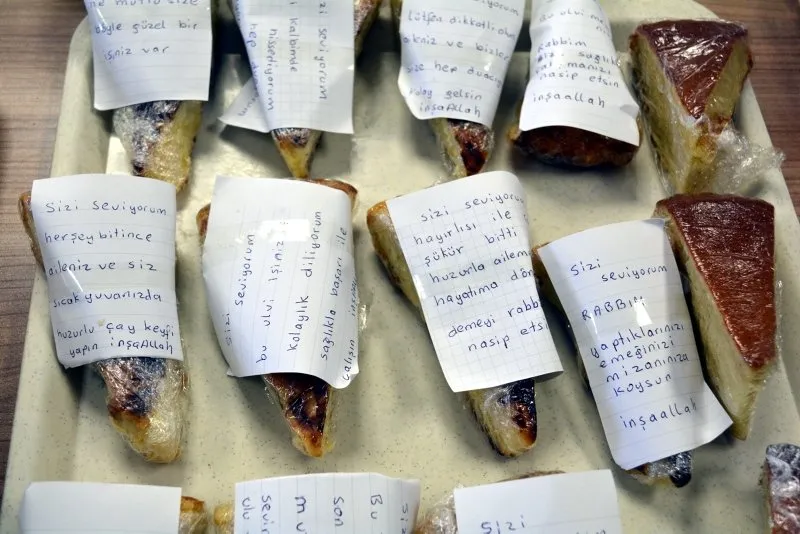 ne mutlu size
böyle güzel bir
işiniz var
sizi seviyorum
kalbimde
hissediyorum
hep
seviyorum
lütfen dikkatli olun
aileniz ve bizler
size hep duacıyız
kolay gelsin
inşaAllah
Bu ulvi
Rabbim
sağlık
nasip etsin
inşaallah
Sizi seviyorum
herşey bitince
aileniz ve siz
sıcak yuvanızda
huzurlu çay keyfi
yapın inşaAllah
sizi seviyorum
bu ulvi işiniz
kolaylık diliyorum
sağlıkla başarı ile
çalışın
sizi seviyorum
hayırlısı ile
şükür bitti
huzurla
hayatıma
demeyi rabbi
nasip etsi
Sizi
seviyorum
RABBİM
yaptıklarınızı
emeğinizi
mizanınıza
koysun
inşaallah
son
Bu
sizi